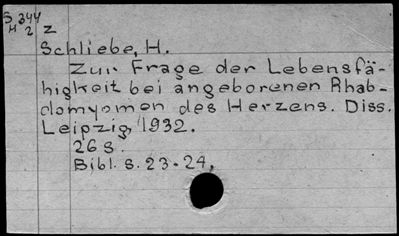 S 344
H 2 Z
Schliebe, H.
Zur Frage der Lebensfä-
higkeit bei angeborenen Rhab-
domyomen des Herzens. Diss.
Leipzig, 1932.
26 S.
Bibl. S. 23-24.